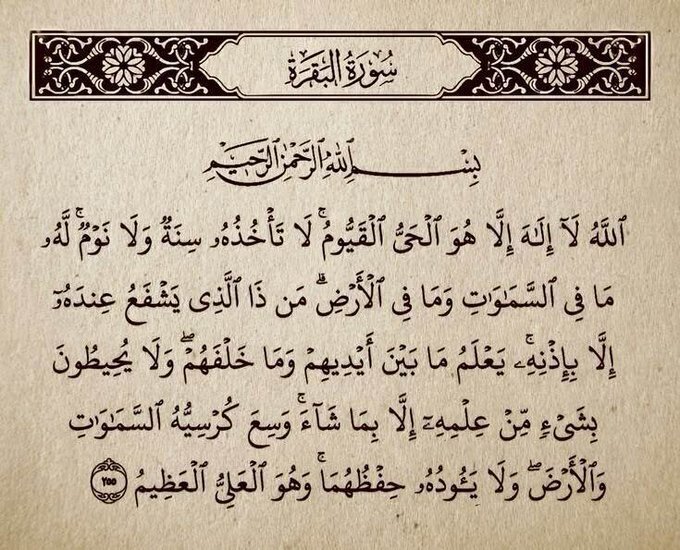 سُورَةُ الْبَقَرَةِ
بِسْمِ ٱللَّهِ ٱلرَّحْمَٰنِ ٱلرَّحِيمِ
ٱللَّهُ لَآ إِلَٰهَ إِلَّا هُوَ ٱلْحَىُّ ٱلْقَيُّومُ ۚ لَا تَأْخُذُهُۥ سِنَةٌ وَلَا نَوْمٌ ۚ لَّهُۥ
مَا فِى ٱلسَّمَٰوَٰتِ وَمَا فِى ٱلْأَرْضِ ۗ مَن ذَا ٱلَّذِى يَشْفَعُ عِندَهُۥٓ
إِلَّا بِإِذْنِهِۦ ۚ يَعْلَمُ مَا بَيْنَ أَيْدِيهِمْ وَمَا خَلْفَهُمْ ۖ وَلَا يُحِيطُونَ
بِشَىْءٍ مِّنْ عِلْمِهِۦٓ إِلَّا بِمَا شَآءَ ۚ وَسِعَ كُرْسِيُّهُ ٱلسَّمَٰوَٰتِ
وَٱلْأَرْضَ ۖ وَلَا يَـُٔودُهُۥ حِفْظُهُمَا ۚ وَهُوَ ٱلْعَلِىُّ ٱلْعَظِيمُ ٢٥٥